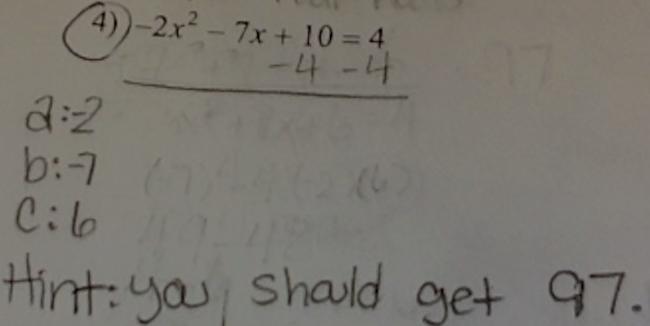 4) -2x² - 7x + 10 = 4
-4 -4
a:-2
b:-7
c:6
Hint: you should get 97.